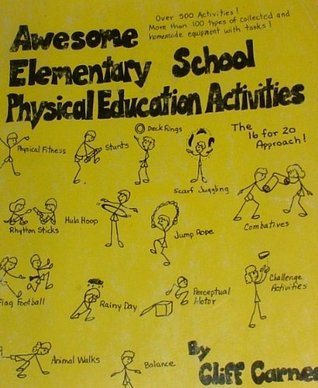 Over 500 Activities!
More than 100 types of collected and
homemade equipment with tasks!
Awesome
Elementary School
Physical Education Activities
Deck Rings
The
16 for 20
Approach!
Physical Fitness
Stunts
Scarf Juggling
Rhythm Sticks
Hula Hoop
Jump Rope
Combatives
Flag Football
Rainy Day
Perceptual
Motor
Challenge
Activities
Animal Walks
Balance
By
Cliff Carnes